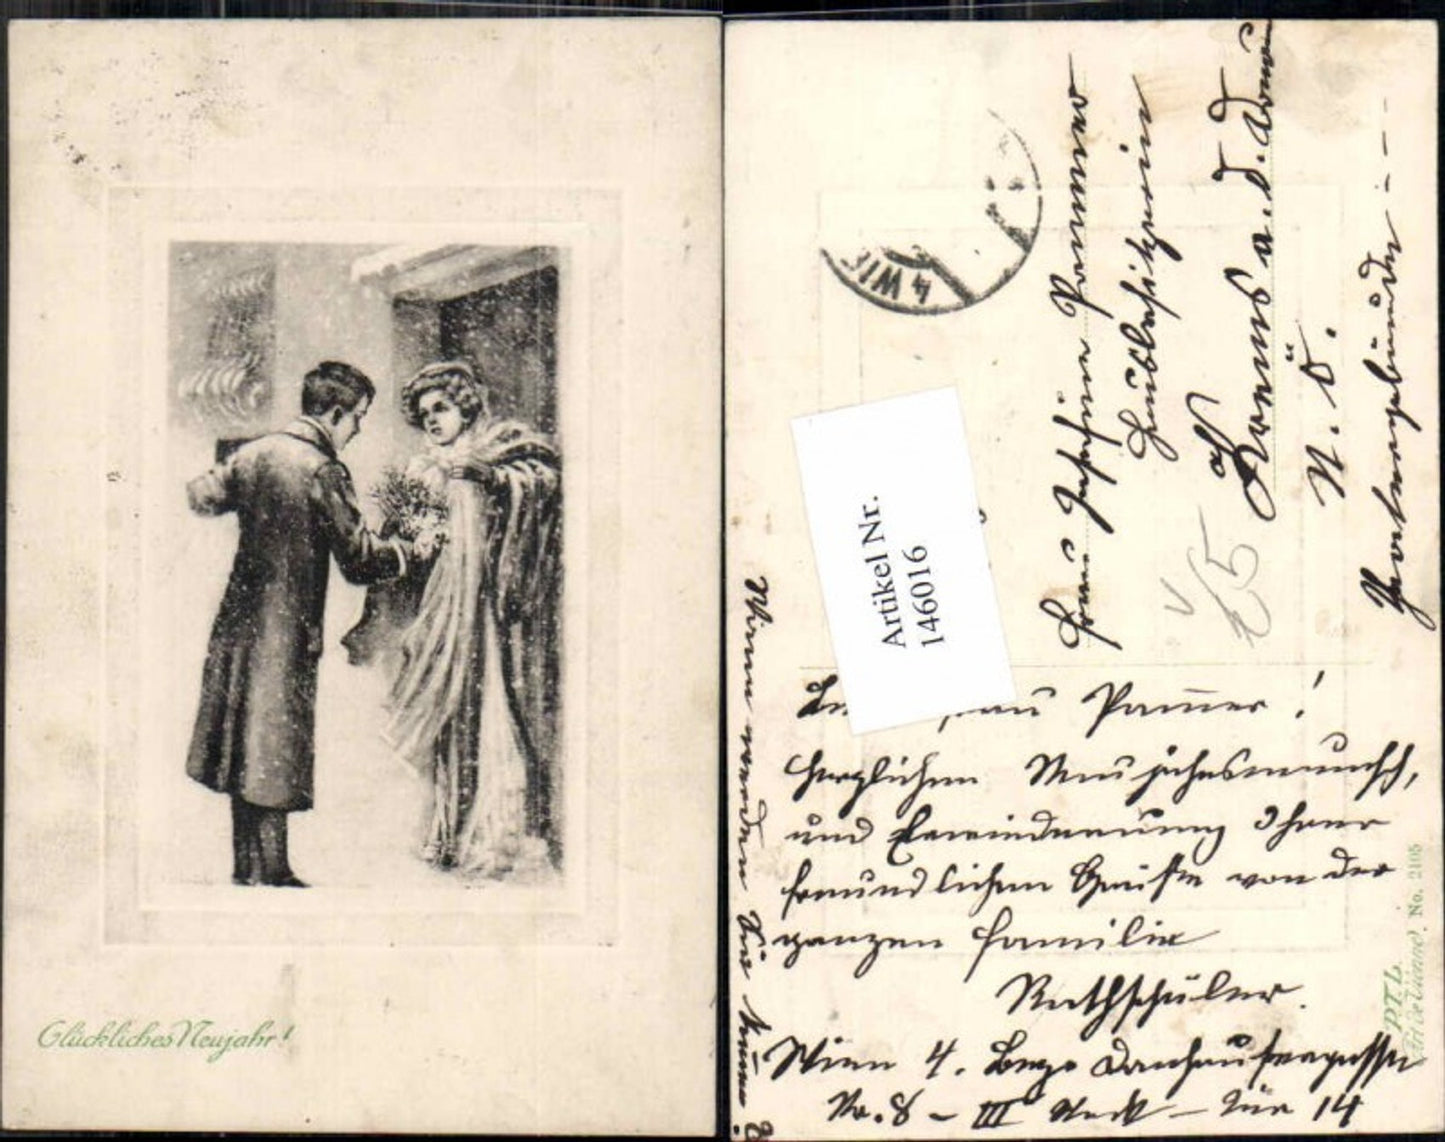 Glückliches Neujahr!
4 WIE
Artikel Nr.
146016
Frau Josefine Pammer
Hausbesitzerin
Krems a. d. Donau
N. Ö.
€5
Frau Pam̅er!
Herzlichen Neujahrswunsch,
und Erwiederung Ihrer
freundlichen Grüße von der
ganzen Familie
Rathschüler.
Wien 4. Bez. Danhausergasse
No. 8 – III Stock – Tür 14
Wann werden Sie kommen?
P.F.L.
No. 2105